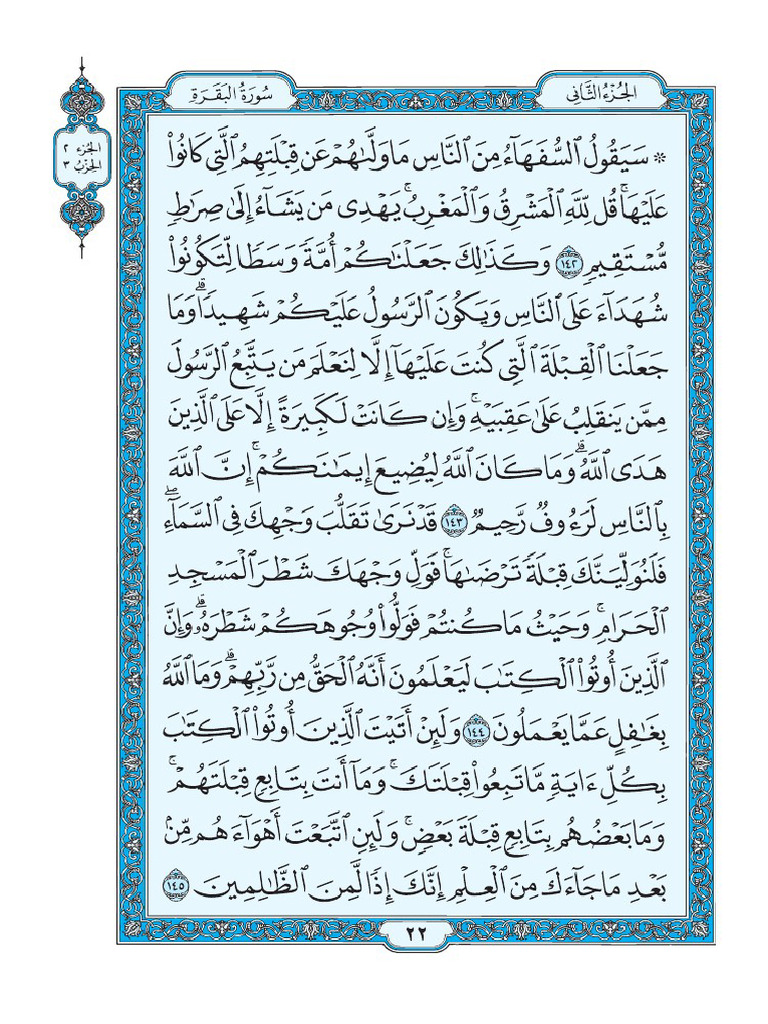 الجُزْءُ الثَّانِي
سُورَةُ البَقَرَةِ
الجزء ٢
الحِزْبُ ٣
۞ سَيَقُولُ ٱلسُّفَهَآءُ مِنَ ٱلنَّاسِ مَا وَلَّىٰهُمْ عَن قِبْلَتِهِمُ ٱلَّتِى كَانُوا۟
عَلَيْهَا ۚ قُل لِّلَّهِ ٱلْمَشْرِقُ وَٱلْمَغْرِبُ ۚ يَهْدِى مَن يَشَآءُ إِلَىٰ صِرَٰطٍ
مُّسْتَقِيمٍ ١٤٢ وَكَذَٰلِكَ جَعَلْنَٰكُمْ أُمَّةً وَسَطًا لِّتَكُونُوا۟
شُهَدَآءَ عَلَى ٱلنَّاسِ وَيَكُونَ ٱلرَّسُولُ عَلَيْكُمْ شَهِيدًا ۗ وَمَا
جَعَلْنَا ٱلْقِبْلَةَ ٱلَّتِى كُنتَ عَلَيْهَآ إِلَّا لِنَعْلَمَ مَن يَتَّبِعُ ٱلرَّسُولَ
مِمَّن يَنقَلِبُ عَلَىٰ عَقِبَيْهِ ۚ وَإِن كَانَتْ لَكَبِيرَةً إِلَّا عَلَى ٱلَّذِينَ
هَدَى ٱللَّهُ ۗ وَمَا كَانَ ٱللَّهُ لِيُضِيعَ إِيمَٰنَكُمْ ۚ إِنَّ ٱللَّهَ
بِٱلنَّاسِ لَرَءُوفٌ رَّحِيمٌ ١٤٣ قَدْ نَرَىٰ تَقَلُّبَ وَجْهِكَ فِى ٱلسَّمَآءِ ۖ
فَلَنُوَلِّيَنَّكَ قِبْلَةً تَرْضَىٰهَا ۚ فَوَلِّ وَجْهَكَ شَطْرَ ٱلْمَسْجِدِ
ٱلْحَرَامِ ۚ وَحَيْثُ مَا كُنتُمْ فَوَلُّوا۟ وُجُوهَكُمْ شَطْرَهُۥ ۗ وَإِنَّ
ٱلَّذِينَ أُوتُوا۟ ٱلْكِتَٰبَ لَيَعْلَمُونَ أَنَّهُ ٱلْحَقُّ مِن رَّبِّهِمْ ۗ وَمَا ٱللَّهُ
بِغَٰفِلٍ عَمَّا يَعْمَلُونَ ١٤٤ وَلَئِنْ أَتَيْتَ ٱلَّذِينَ أُوتُوا۟ ٱلْكِتَٰبَ
بِكُلِّ ءَايَةٍ مَّا تَبِعُوا۟ قِبْلَتَكَ ۚ وَمَآ أَنتَ بِتَابِعٍ قِبْلَتَهُمْ ۚ
وَمَا بَعْضُهُم بِتَابِعٍ قِبْلَةَ بَعْضٍ ۚ وَلَئِنِ ٱتَّبَعْتَ أَهْوَآءَهُم مِّنۢ
بَعْدِ مَا جَآءَكَ مِنَ ٱلْعِلْمِ إِنَّكَ إِذًا لَّمِنَ ٱلظَّٰلِمِينَ ١٤٥
٢٢